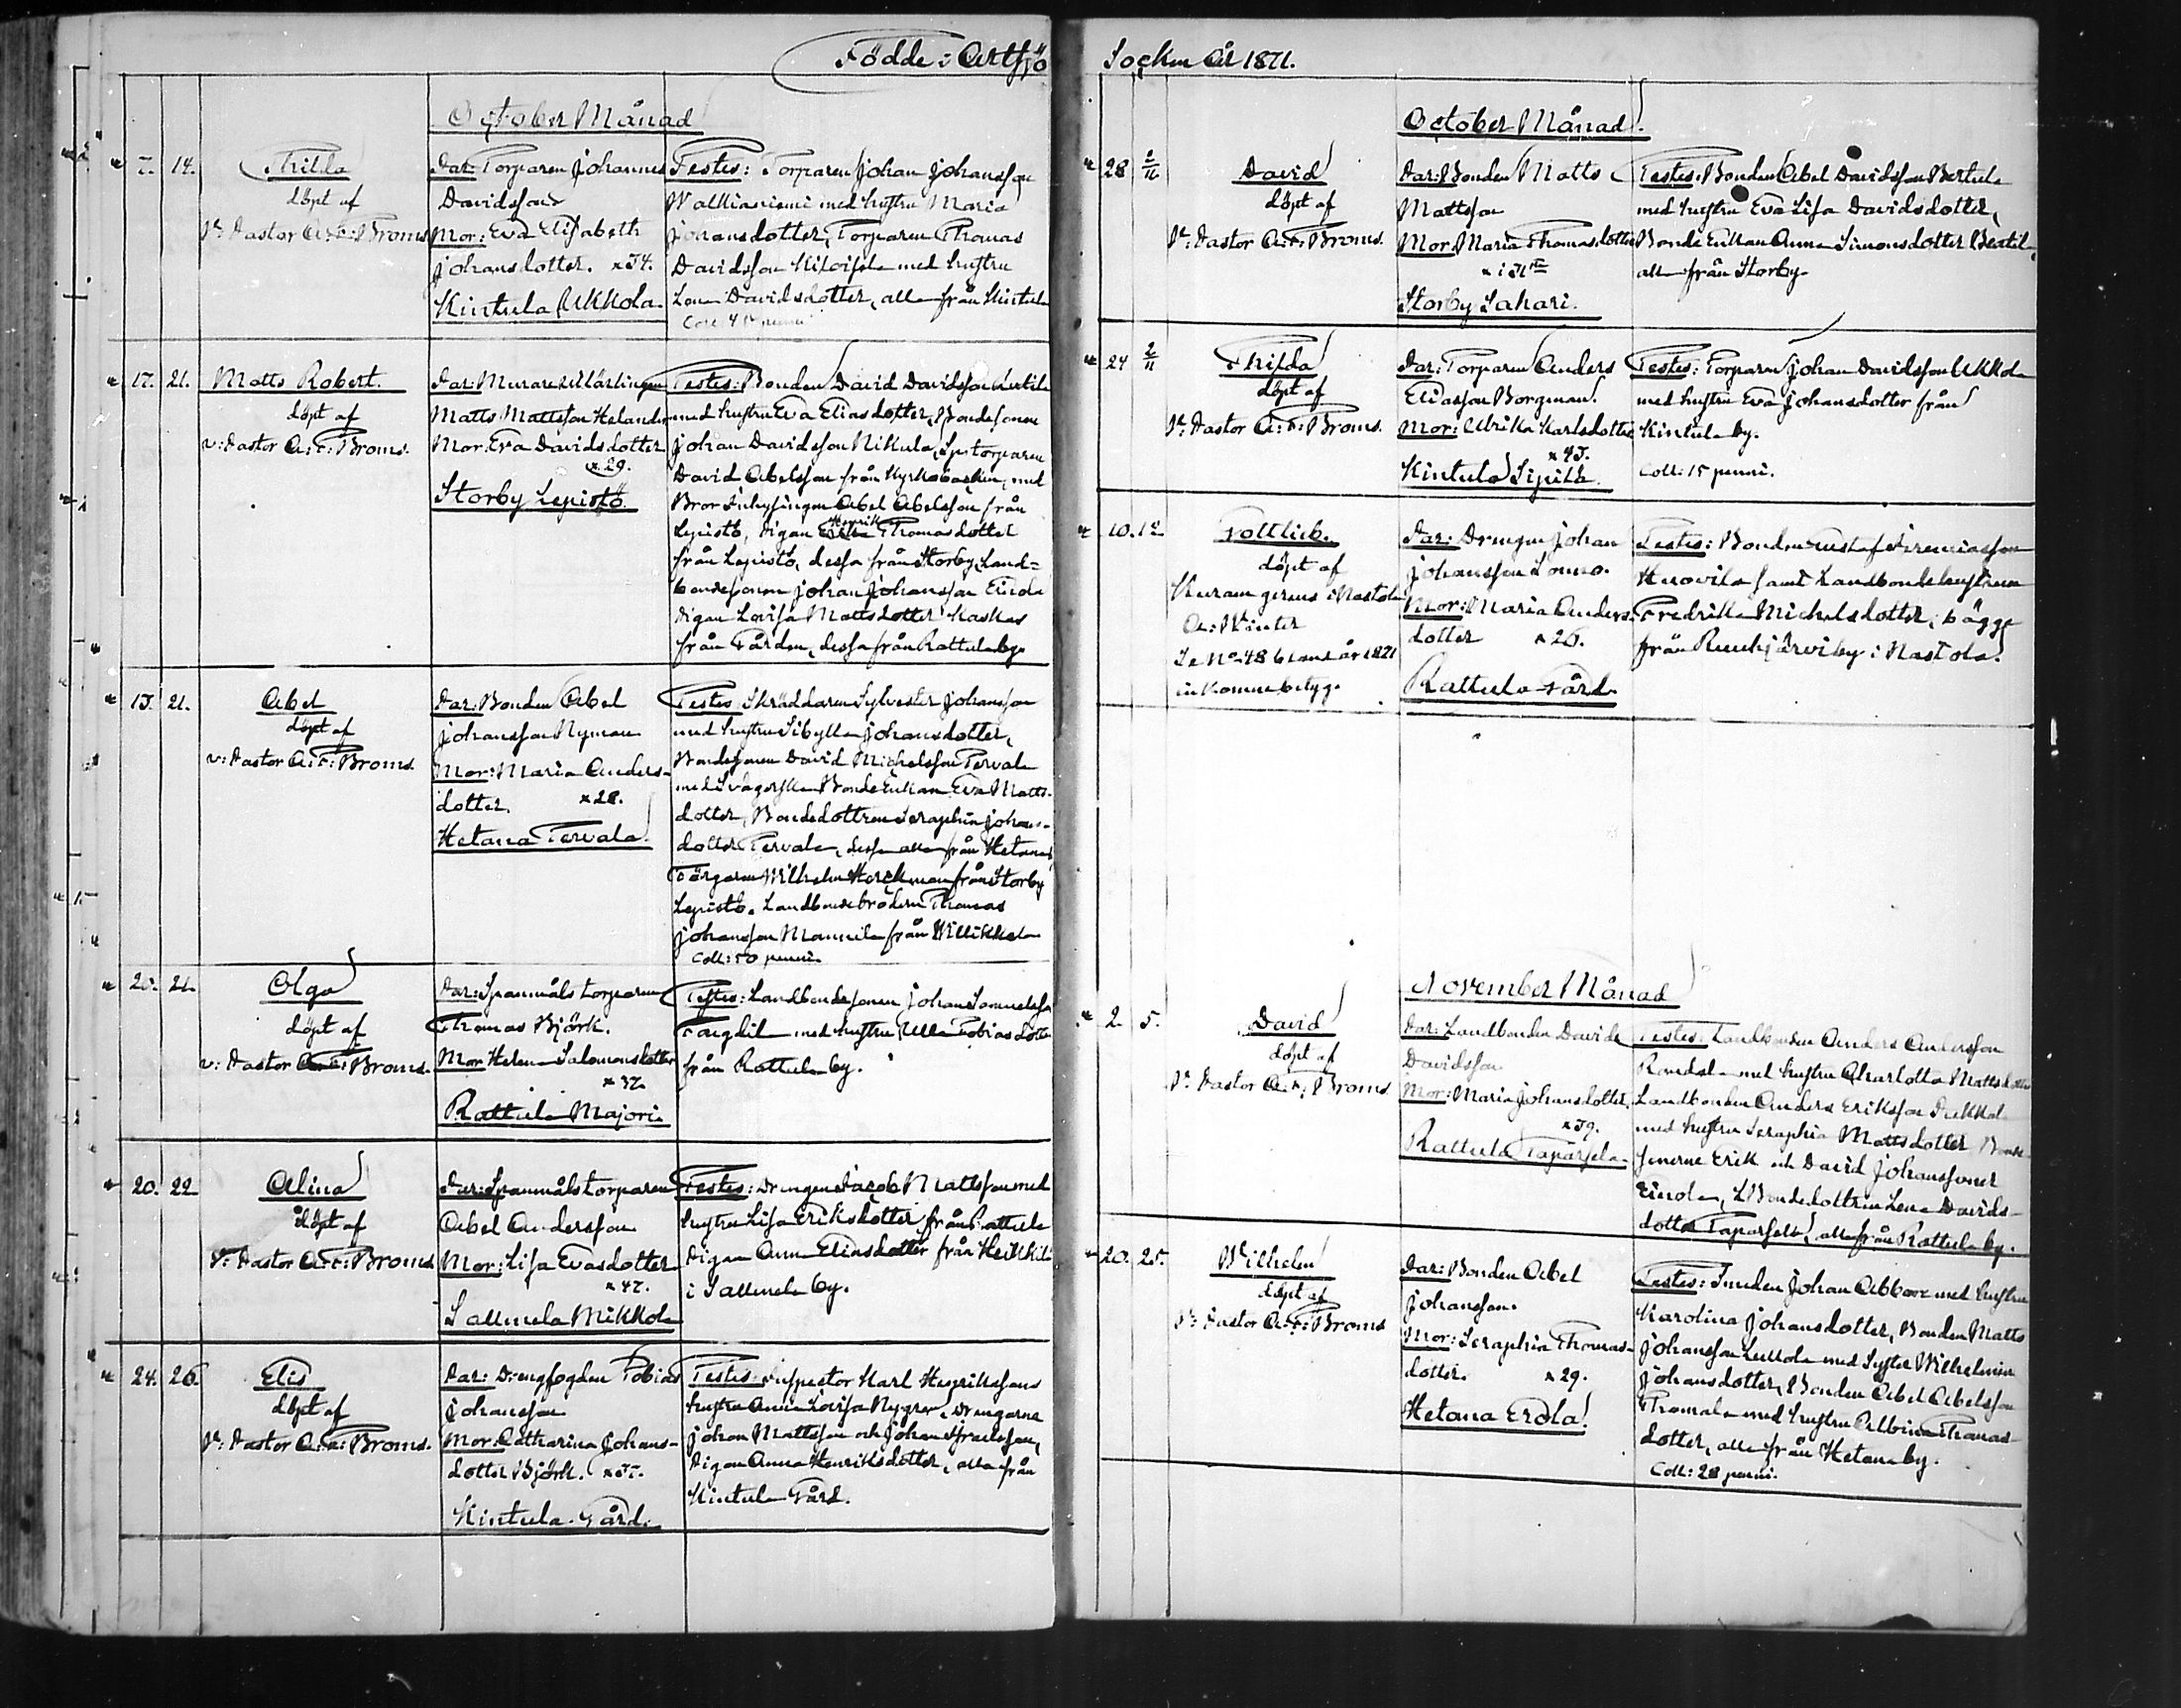 Födde i Artsjö
October Månad
14.
Hilda
döpt af
V: Pastor A: F: Broms
Far: Torparen Johannes
Davidsson
Mor: Eva Elisabeth
Johansdotter. x 34.
Kintula Ukkola.
Testes: Torparen Johan Johansson
med hustru Maria
Johansdotter, Torparen Thomas
Davidsson med hustru
Lena Davidsdotter, alla från Kintula
17. 21.
Matts Robert.
döpt af
v: Pastor A: F: Broms.
Far: Murare
Matts Mattsson Helander
Mor: Eva Davidsdotter
x 29.
Storby Lepistö
Testes: Bonden David Davidsson
med hustru Eva Eliasdotter, Bondesonen
Johan Davidsson Nikula,
David Abelsson från Kyrkobacken, med
Bror Abel Abelsson från
Lepistö, Pigan Henrika Thomasdotter
från Lepistö, dessa från Storby, Land=
bondesonen Johan Johansson Einola
Pigan Lovisa Mattsdotter Kaskas
från Gården, dessa från Rattula by.
21.
Abel
döpt af
v: Pastor A: F: Broms.
Far: Bonden Abel
Johansson Nyman
Mor: Maria Anders-
dotter. x 28.
Hetana Tervala
Testes: Skräddaren Sylvester Johansson
med hustru Sibylla Johansdotter,
Bondesonen David Michelsson Tervala
med Svägerskan Bonde Enkan Eva Matts-
dotter, Bondedottren Seraphia Johans-
dotter Tervala, dessa alla från Hetana,
Färgaren Wilhelm från Storby
Lepistö. Landbondebrodern Thomas
Johansson Mannila från Willikkala
Coll: 50 penni.
20. 21.
Olga
döpt af
v: Pastor A: F: Broms.
Far: Spanmåls torparen
Thomas Björk.
Mor: Helena Salomonsdotter
x 32
Rattula Majori
Testes: Landbondesonen Johan Samuelsson
med hustru Ulla Tobiasdotter
från Rattula by.
20. 22
Alina
döpt af
V: Pastor A: F: Broms
Far: Spanmåls torparen
Abel Andersson
Mor: Lisa Evasdotter
x 42.
Sallmela Mikkola
Testes: Drengen Jacob Mattsson med
hustru Lisa Eriksdotter från Rattula
Pigan Anna Eliasdotter från Heikkilä
i Sallmela by.
24. 26.
Elis
döpt af
V: Pastor A: F: Broms.
Far: Drengfogden Tobias
Johansson
Mor: Catharina Johans-
dotter Björk.
Kintula Gård.
Testes: Inspector Karl Henrikssons
hustru Anna Lovisa Nygren, Drengarne
Johan Mattsson och Johan Israelsson,
Pigan Anna Henriksdotter, alla från
Kintula Gård.
Socken År 1871.
October Månad.
28 2/11
David
döpt af
V: Pastor A: F: Broms.
Far: Bonden Matts
Mattsson
Mor: Maria Thomasdotter
Storby Sahari.
Testes: Bonden Abel Davidsson Bertula
med hustru Eva Lisa Davidsdotter,
Bonde Enkan Anna Simonsdotter
alla från Storby.
24 2/11
Hilda
döpt af
V: Pastor A: F: Broms.
Far: Torparen Anders
Eliasson Borgman.
Mor: Ulrika Karlsdotter
x 43.
Kintula Sipilä.
Testes: Torparen Johan Davidsson Ukkola
med hustru Eva Johansdotter från
Kintula by.
Coll: 15 penni.
10. 12
Gottlieb.
döpt af
i Nastola
A: Winter
Se No 48 bland år 1871
inkomne betyg.
Far: Drengen Johan
Johansson
Mor: Maria Anders-
dotter x 26.
Rattula Gård.
Testes: Bonden Gustaf Jeremiasson
samt Landbondehustrun
Fredrika Michelsdotter, bägge
från Ruuhijärvi by i Nastola.
November Månad
2. 5.
David
döpt af
V: Pastor A: F: Broms
Far: Landbonden David
Davidsson
Mor: Maria Johansdotter,
x 39.
Rattula
Testes: Landbonden Anders Andersson
med hustru Charlotta Mattsdotter
Landbonden Anders Eriksson
med hustru Seraphia Mattsdotter Bonde-
sönerne Erik och David Johanssöner
Einola, Bondedottren Lena Davids-
dotter alla från Rattula by.
20. 25.
Wilhelm
döpt af
V: Pastor A: F: Broms
Far: Bonden Abel
Johansson.
Mor: Seraphia Thomas-
dotter. x 29.
Hetana Erola.
Testes: Smeden Johan med hustru
Karolina Johansdotter, Bonden Matts
Johansson med Syster Wilhelmina
Johansdotter, Bonden Abel Abelsson
med hustru Albina Thomas-
dotter, alla från Hetana by.
Coll: 28 penni.